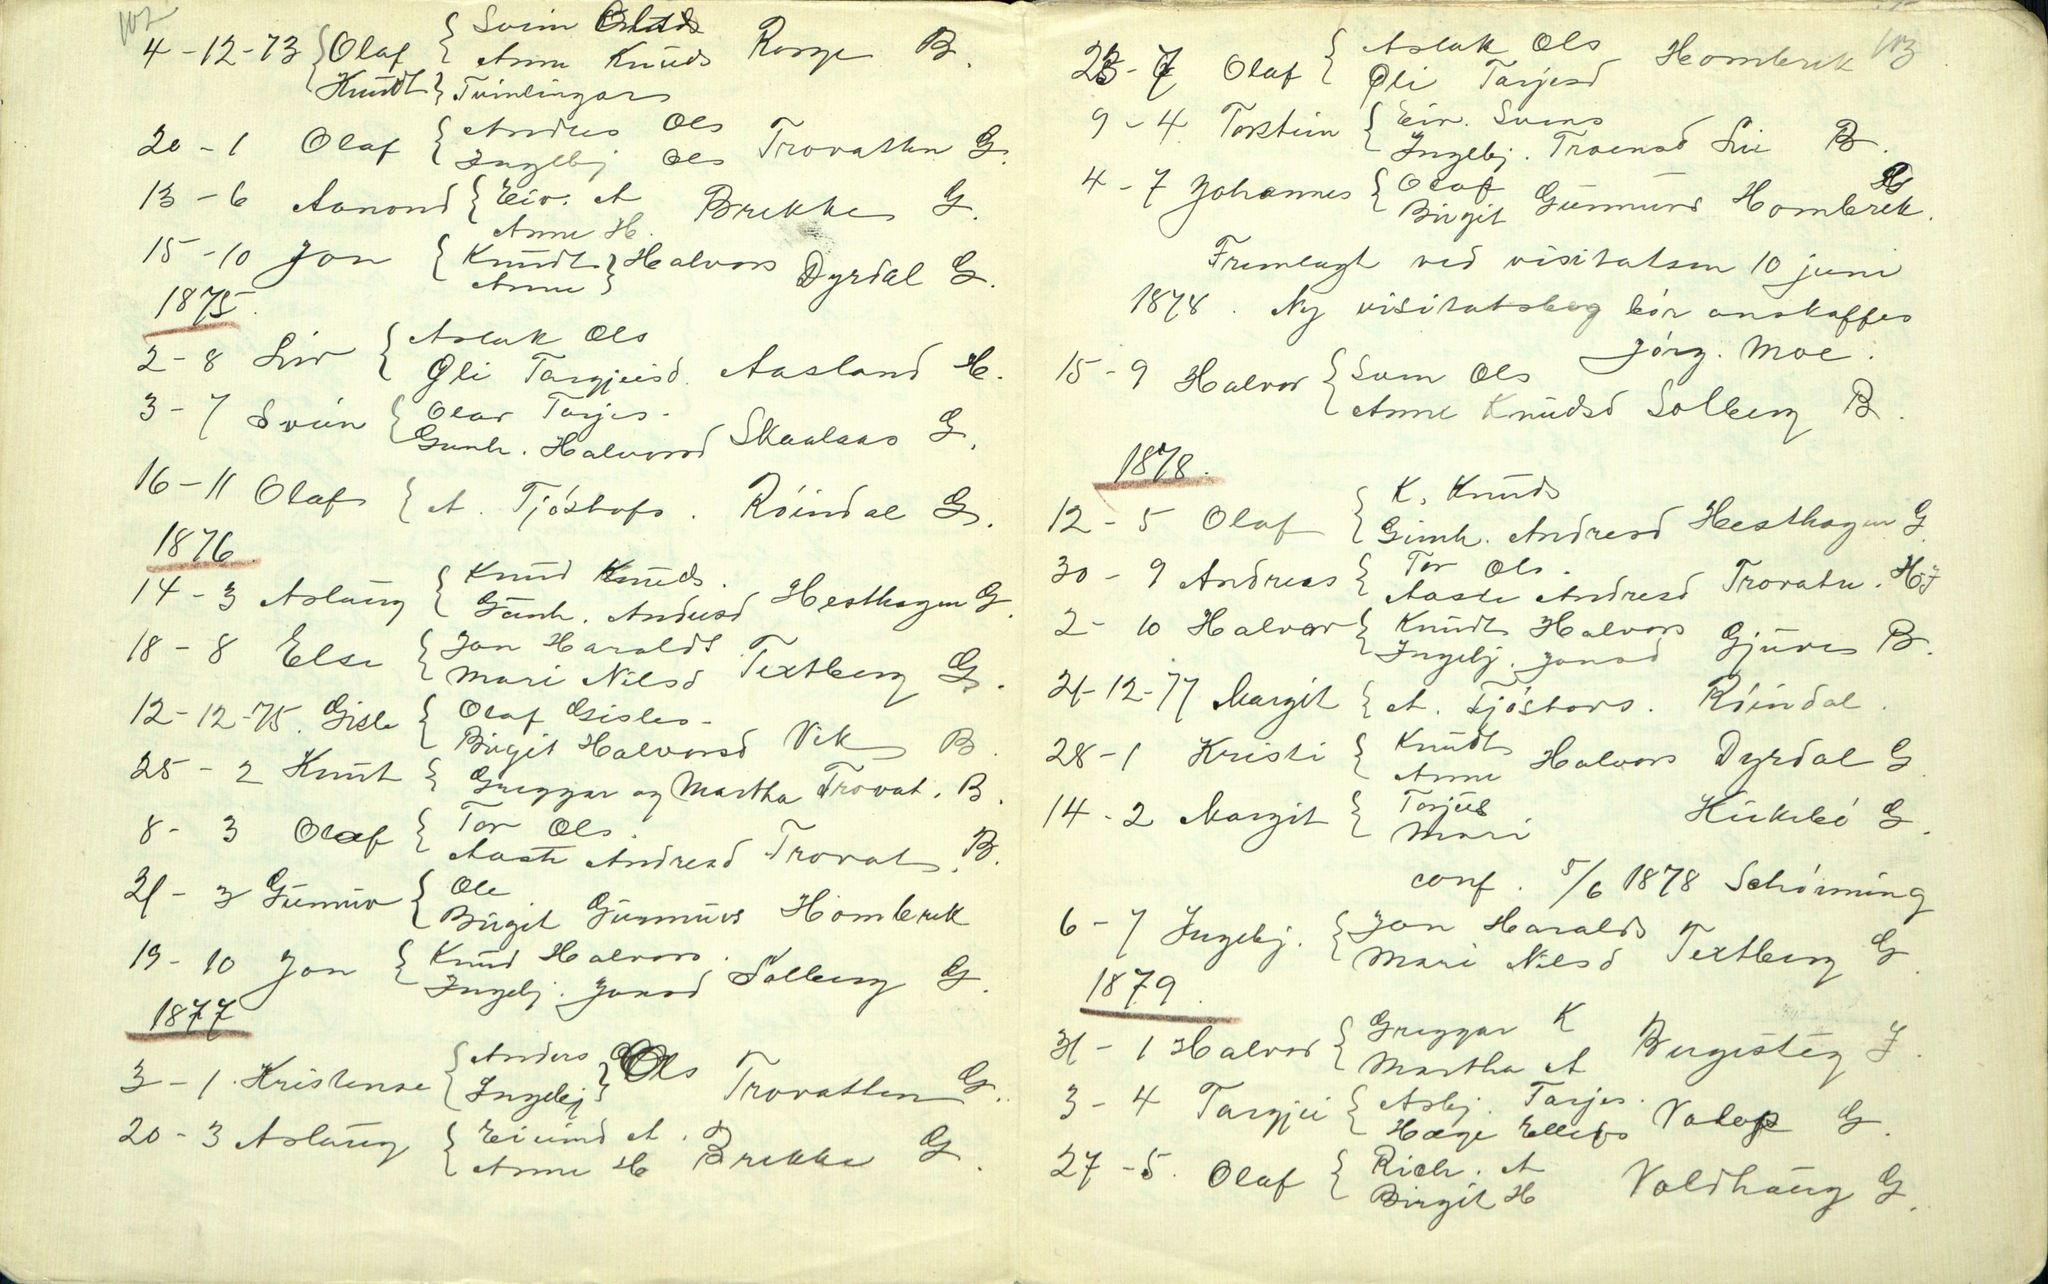 102
4-12-73 { Olaf { Svein Olads
Knudt } Anne Knuds Rorge B.
Tvinlingar
20-1 Olaf { Andres Ols
Ingebj Ols Trovatten G.
13-6 Aanond { Eiv. A
Anne H. Brekke G.
15-10 Jon { Knudt
Anne } Halvors Dyrdal G.
1875.
2-8 Liv { Aslak Ols
Oli Targjeisd. Aasland H.
3-7 Svein { Olav Tarjes.
Gunh. Halvorsd Skaalaas G.
16-11 Olaf { A. Tjóstofs. Róindal G.
1876
14-3 Aslaug { Knud Knuds.
Gunh. Andresd Hesthagen G.
18-8 Else { Jon Haralds
Mari Nilsd Textberg G.
12-12-75. Gisle { Olaf Gisles-
Birgit Halvorsd Vik B.
25-2 Knut { Greggar og Martha Trovat. B.
8-3 Olaf { Tor Ols.
Aaste Andresd Trovat. B.
21-3 Gunnuv { Ole
Birgit Gunnuvs Hombrek
19-10 Jon { Knud Halvors.
Ingebj. Jonsd Solberg G.
1877
3-1. Kristense { Anders
Ingebj } Ols Trovatten G.
20-3 Aslaug { Eivind A.
Anne H Brekke G.
103
23-7 Olaf { Aslak Ols
Oli Tarjesd Hombrek
9-4 Torstein { Eiv. Svens
Ingebj. Troensd Lii B.
4-7 Johannes { Olaf
Birgit Gunnuvs Hombrek. H
Fremlagt ved visitatsen 10 juni
1878. Ny visitatsbog bór anskaffes
Jórg. Moe.
15-9 Halvor { Svein Ols
Anne Knudsd Solberg B.
1878.
12-5 Olaf { K. Knuds
Gunh. Andresd Hesthagen G
30-9 Andreas { Tor Ols.
Aaste Andresd Trovatn. H.J
2-10 Halvor { Knudt Halvors
Ingebj. Jonsd Gjuves B.
21-12-77 Margit { A. Tjóstovs. Róindal.
28-1 Kristi { Knudt
Anne Halvors Dyrdal G
14-2 Margit { Torjus
Mari Hukebó G.
conf. 5/6 1878 Schórnning
6-7 Ingebj. { Jon Haralds
Mari Nilsd Textberg G.
1879.
31-1 Halvor { Greggar K
Martha A Bergisteg J.
3-4 Targjei { Asbj. Tarjes.
Hæge Ellefs Valep G.
27-5. Olaf { Rich. A
Birgit H Voldhaug G.